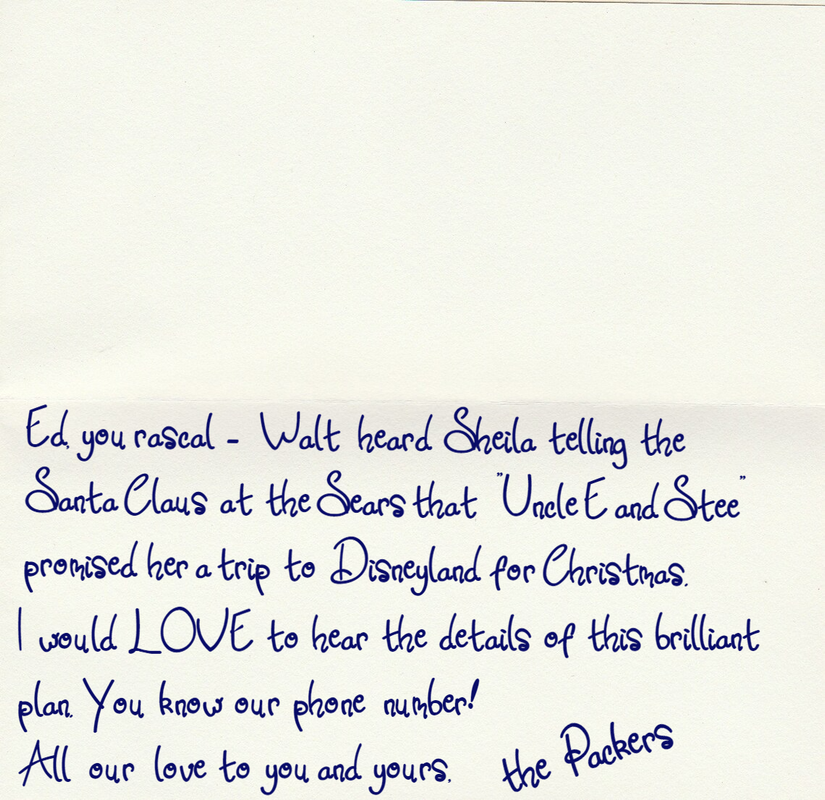 Ed, you rascal - Walt heard Sheila telling the
Santa Claus at the Sears that "Uncle E and Stee"
promised her a trip to Disneyland for Christmas.
I would LOVE to hear the details of this brilliant
plan. You know our phone number!
All our love to you and yours. the Packers